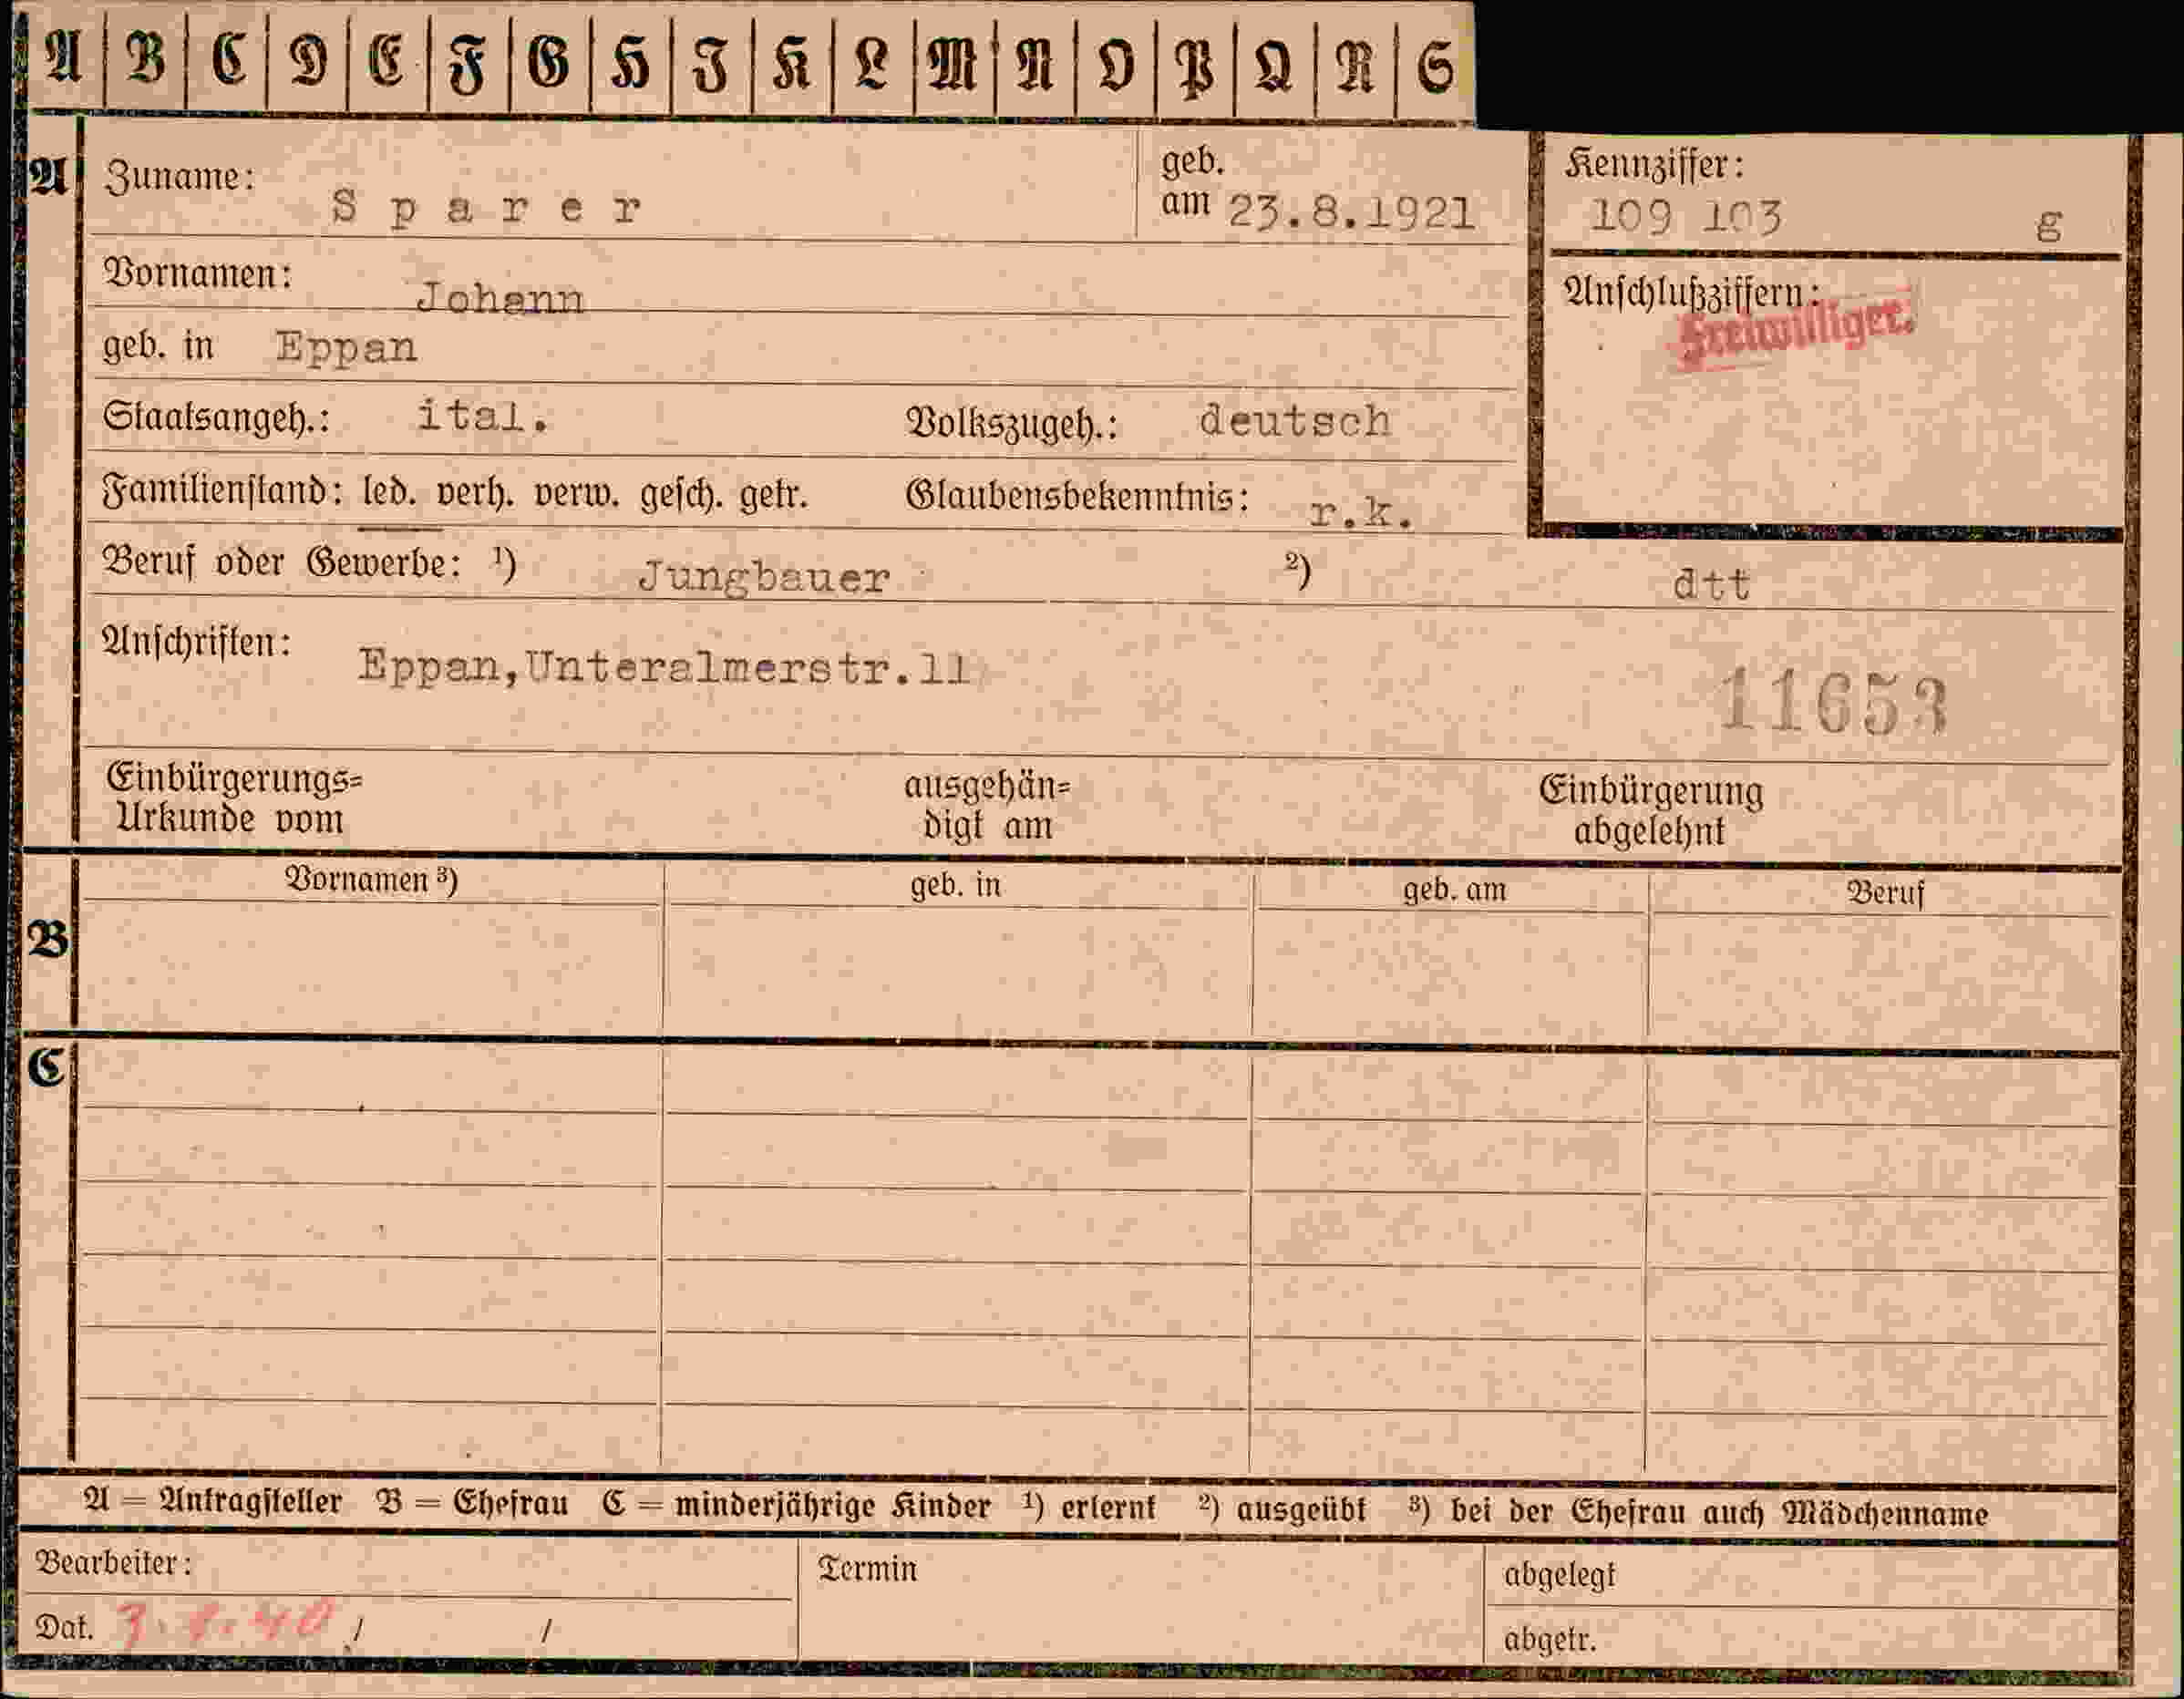 A B C D E F G H I K L M N O P Q R S
A Zuname: Sparer geb. am 23.8.1921 Kennziffer: 109 103 g
Vornamen: Johann Anschlußziffern:
Freiwilliger.
geb. in Eppan
Staatsangeh.: ital. Volkszugeh.: deutsch
Familienstand: led. verh. verw. gesch. getr. Glaubensbekenntnis: r.k.
Beruf oder Gewerbe: ¹) Jungbauer ²) dtt
Anschriften: Eppan,Unteralmerstr.11
11653
Einbürgerungs= ausgehän= Einbürgerung
Urkunde vom digt am abgelehnt
Vornamen ³) geb. in geb. am Beruf
B
C
A = Antragsteller B = Ehefrau C = minderjährige Kinder ¹) erlernt ²) ausgeübt ³) bei der Ehefrau auch Mädchenname
Bearbeiter: Termin abgelegt
Dat. / / abgetr.